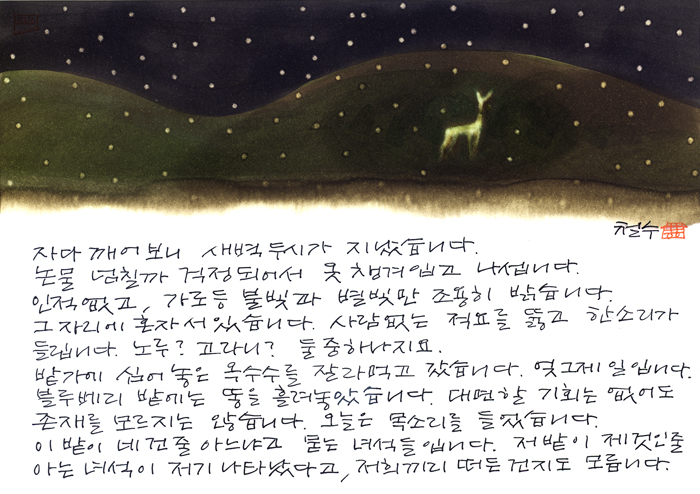 철수
자다 깨어보니 새벽 두시가 지났습니다.
논물 넘칠까 걱정되어서 옷 챙겨입고 나섭니다.
인적없고, 가로등 불빛과 별빛만 조용히 밝습니다.
그 자리에 혼자 서있습니다. 사람없는 적요를 뚫고 한소리가
들립니다. 노루? 고라니? 둘 중 하나지요.
밭가에 심어놓은 옥수수를 잘라먹고 갔습니다. 엊그제 일입니다.
블루베리 밭에는 똥을 흘려놓았습니다. 대면할 기회는 없어도
존재를 모르지는 않습니다. 오늘은 목소리를 들었습니다.
이 밭이 네 건 줄 아느냐고 묻는 녀석들입니다. 저 밭이 제것인줄
아는 녀석이 저기 나타났다고, 저희끼리 떠든 건지도 모릅니다.